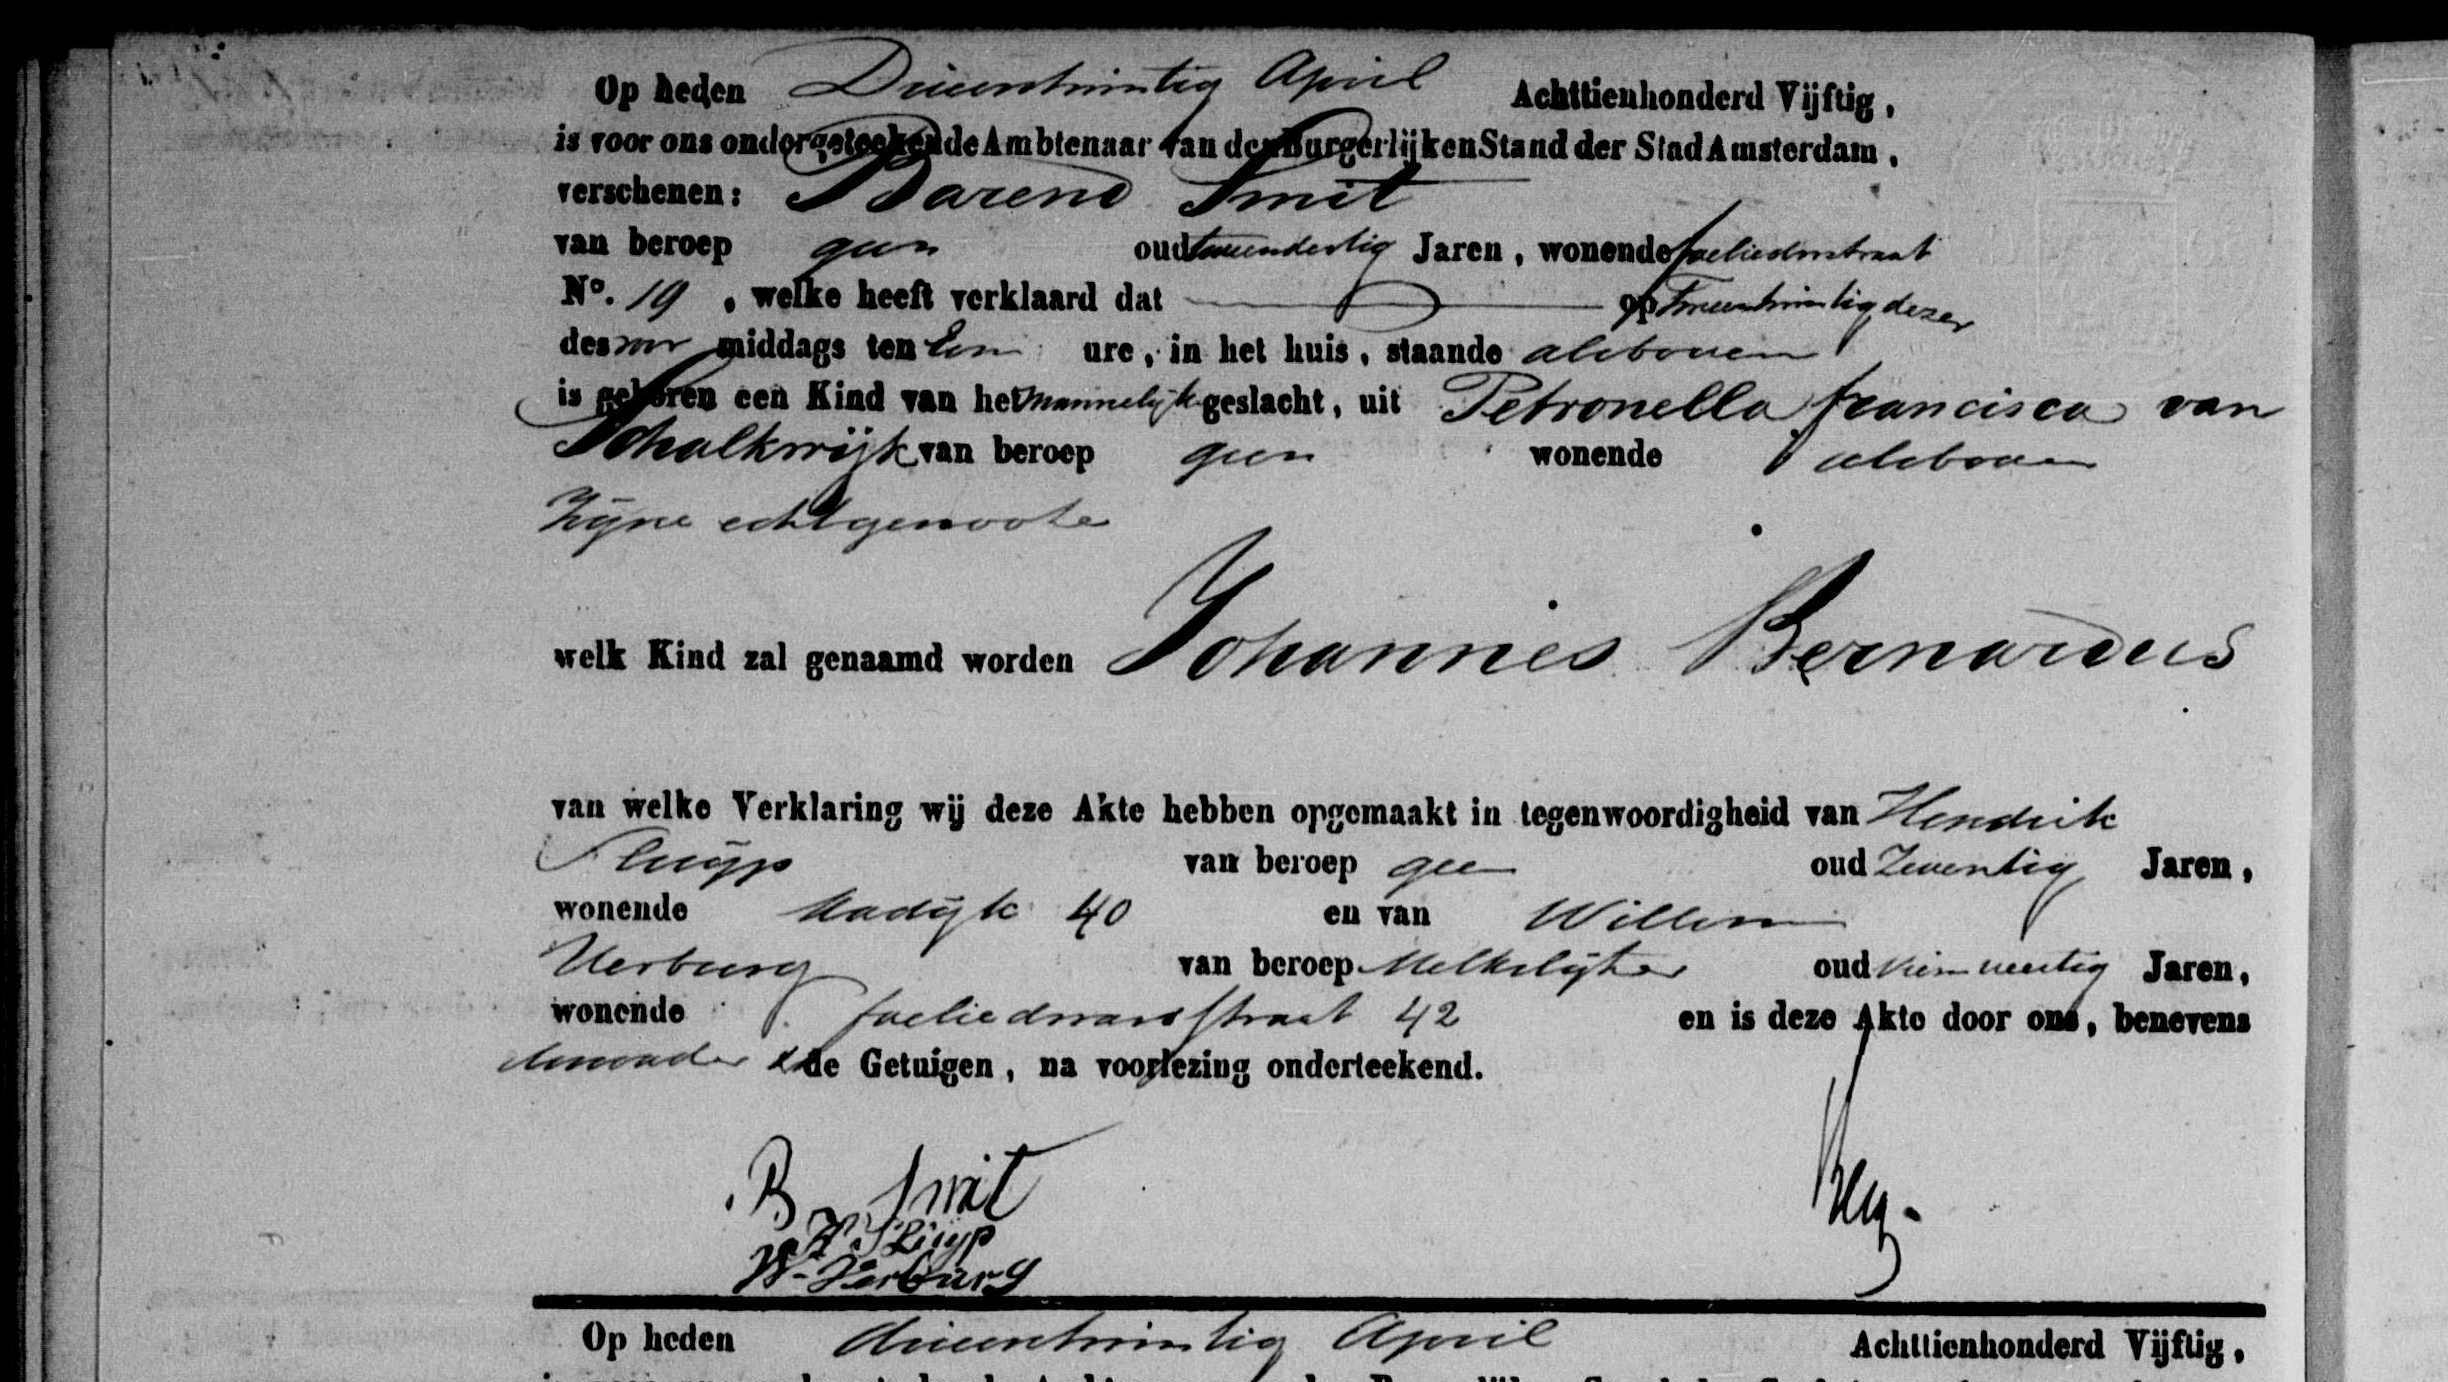 Op heden Drieentwintig April Achttienhonderd Vijftig,
is voor ons ondergeteekende Ambtenaar van den Burgerlijken Stand der Stad Amsterdam,
verschenen: Barend Smit
van beroep geen oud tweendertig Jaren, wonende foeliedwarsstraat
No. 19, welke heeft verklaard dat op Tweentwintig dezer
des voor middags ten Een ure, in het huis, staande alsboven
is geboren een Kind van het Mannelijk geslacht, uit Petronella francisca van
Schalkwijk van beroep geen wonende alsboven
Zijne echtgenoote
welk Kind zal genaamd worden Johannes Bernardus
van welke Verklaring wij deze Akte hebben opgemaakt in tegenwoordigheid van Hendrik
Sluijp van beroep geen oud Zeventig Jaren,
wonende 40 en van Willem
Verburg van beroep Melkslijter oud Jaren,
wonende foeliedwarsstraat 42 en is deze Akte door ons, benevens
de Getuigen, na voorlezing onderteekend.
B Smit
H. Sluijp
W. Verburg
Op heden drieentwintig April Achttienhonderd Vijftig,